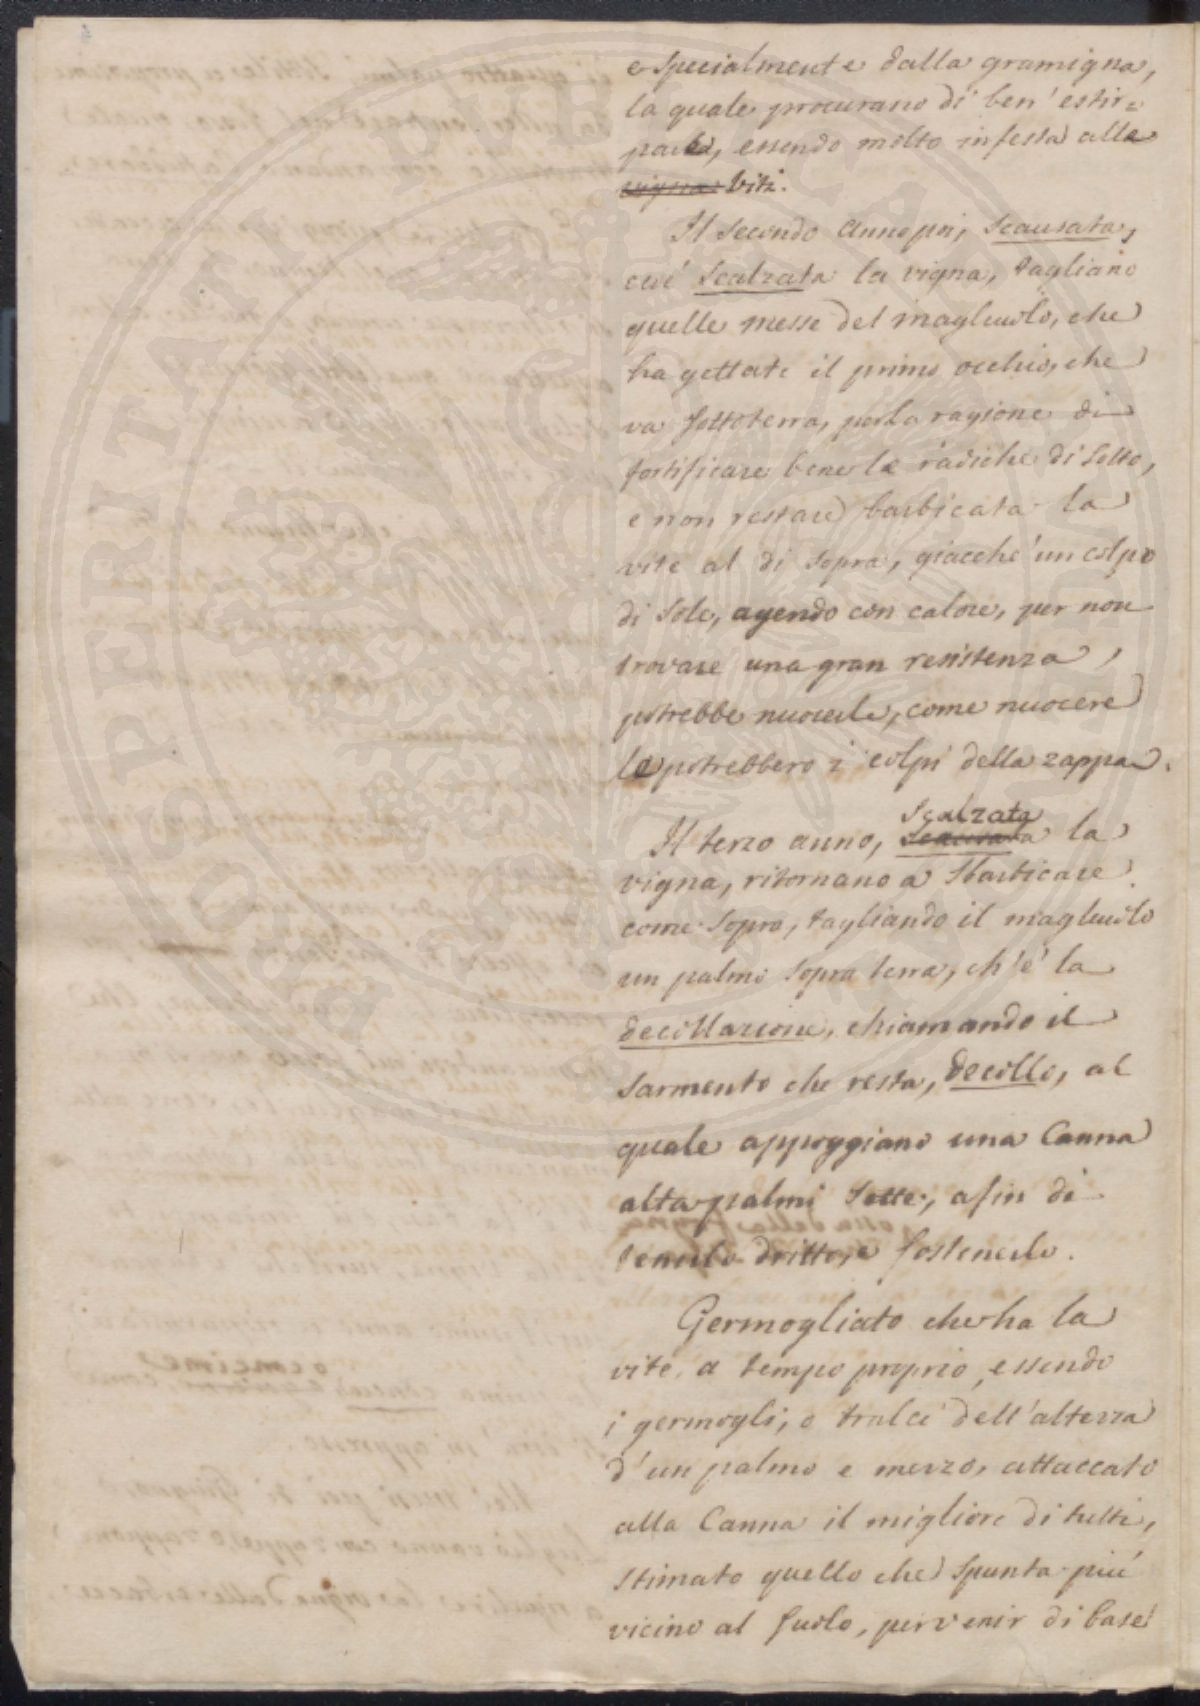 e specialmente dalla gramigna,
la quale procurano di ben' estir=
parla, essendo molto infesta alle
vigna Viti.
Il secondo anno poi, Scausata,
cioè Scalzata la vigna, tagliano
quelle messe del magliuolo, che
ha gettate il primo occhio, che
va sottoterra, per la ragione di
fortificare bene le radiche di sotto,
e non restare barbicata la
vite al di sopra, giacchè un colpo
di Sole, agendo con calore, per non
trovare una gran resistenza,
potrebbe nuocerle, come nuocere
le potrebbero i colpi della zappa.
Scalzata
Il terzo anno, Scausata la
vigna, ritornano a sbarbicare
come sopra, tagliando il magliuolo
un palmo sopra terra, ch'è la
decollazione, chiamando il
sarmento che resta, decollo, al
quale appoggiano una Canna
alta palmi sette, afin di
tenerlo dritto, e sostenerlo.
Germogliato che ha la
vite, a tempo proprio, essendo
i germogli, o tralci dell'altezza
d'un palmo e mezzo, attaccato
alla Canna il migliore di tutti,
stimato quello che spunta più
vicino al suolo, per venir di base
PROSPERITATI PUBLICAE AUGENDAE